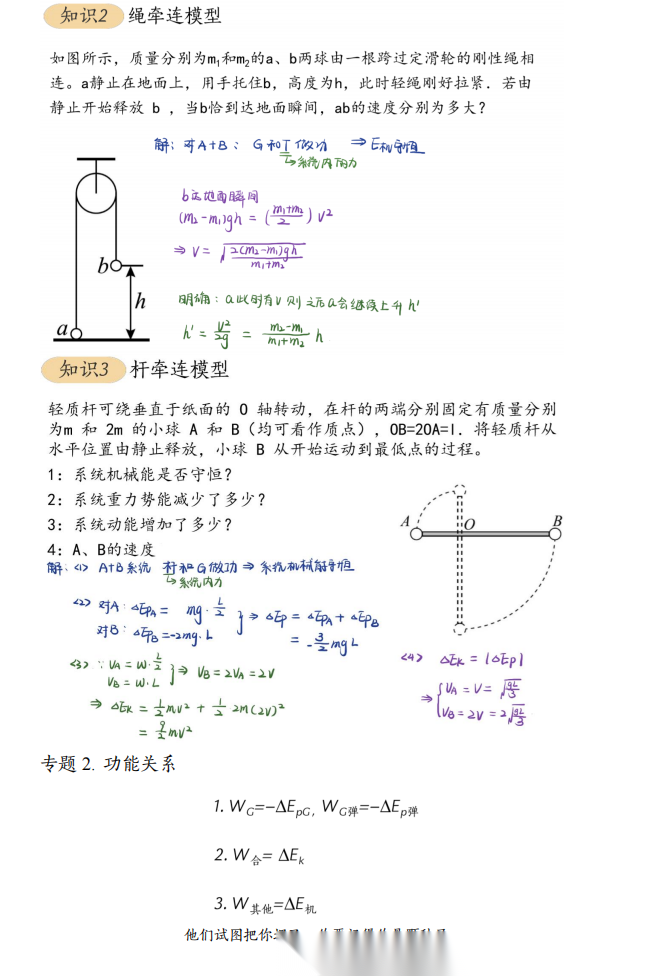 知识2 绳牵连模型
如图所示，质量分别为m₁和m₂的a、b两球由一根跨过定滑轮的刚性绳相
连。a静止在地面上，用手托住b，高度为h，此时轻绳刚好拉紧．若由
静止开始释放 b ，当b恰到达地面瞬间，ab的速度分别为多大？
解：对A+B： G和T做功 ⇒E机守恒
↳系统内内力
b达地面瞬间
(m₂-m₁)gh = (m₁+m₂/2) v²
⇒ v = √(2(m₂-m₁)gh/m₁+m₂)
b
h
a
明确：a此时有v 则之后a会继续上升 h'
h' = v²/2g = m₂-m₁/m₁+m₂ h
知识3 杆牵连模型
轻质杆可绕垂直于纸面的 O 轴转动，在杆的两端分别固定有质量分别
为m 和 2m 的小球 A 和 B（均可看作质点），OB=2OA=l．将轻质杆从
水平位置由静止释放，小球 B 从开始运动到最低点的过程。
1：系统机械能是否守恒？
2：系统重力势能减少了多少？
3：系统动能增加了多少？
4：A、B的速度
A O B
解：<1> A+B系统 杆和G做功 ⇒ 系统机械能守恒
↳系统内力
<2> 对A：△EpA = mg·L/2
对B：△EpB=-2mg·L
} ⇒ △Ep = △EpA + △EpB
= -3/2 mgL
<3> ∵ VA = ω·L/2
VB = ω·L
} ⇒ VB = 2VA = 2V
⇒ △Ek = 1/2 mv² + 1/2 2m(2v)²
= 9/2 mv²
<4> △Ek = |△Ep|
⇒ { VA = V = √(gL/3)
VB = 2V = 2√(gL/3)
专题 2. 功能关系
1. W_G=−ΔE_pG，W_G弹=−ΔE_p弹
2. W_合= ΔE_k
3. W_其他=ΔE_机
他们试图把你